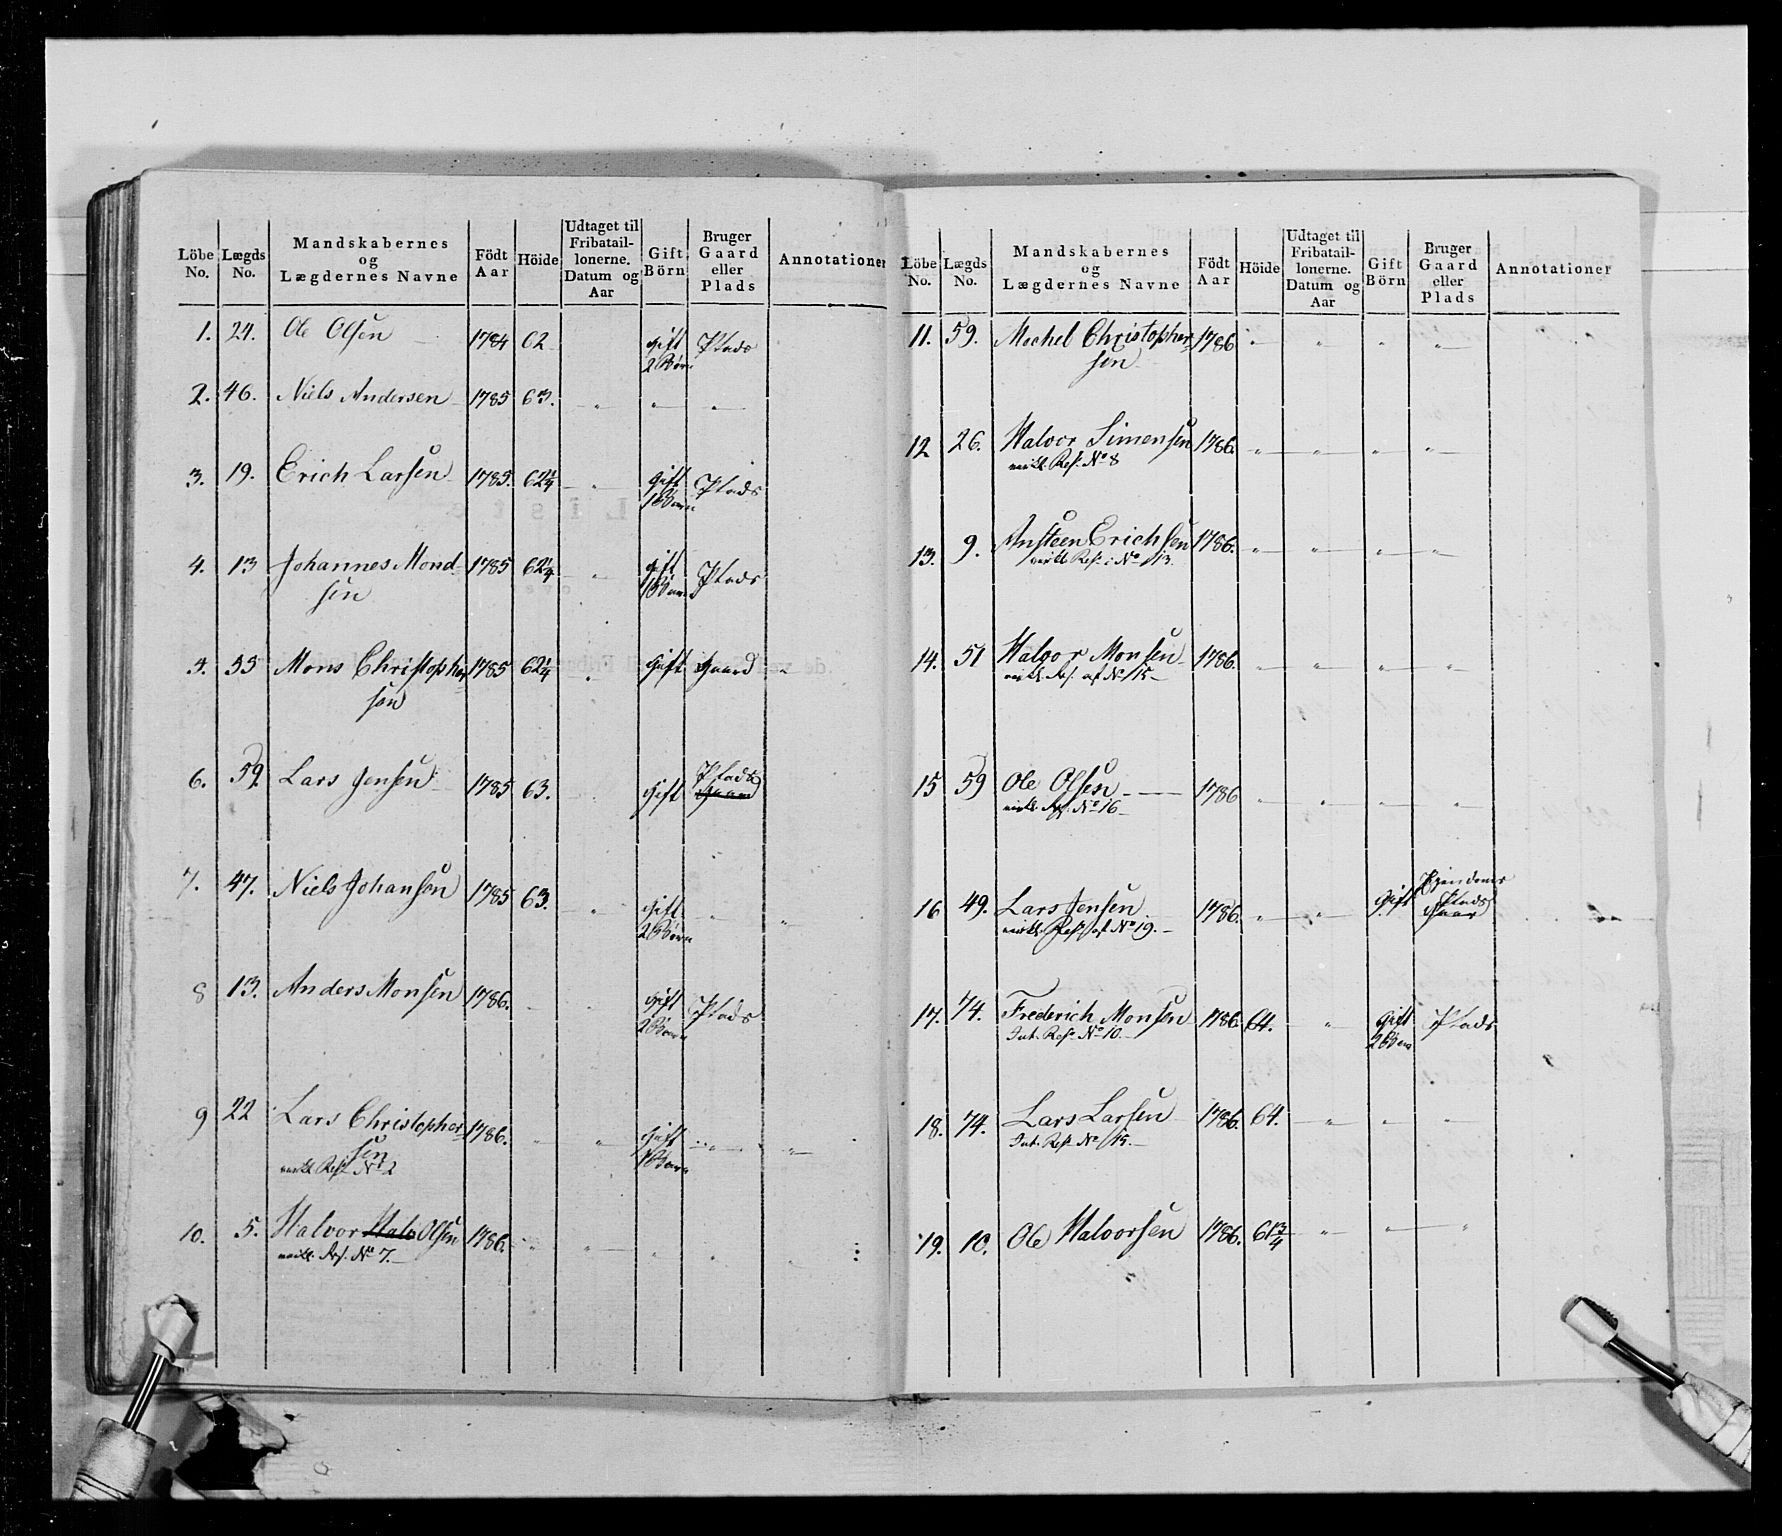 Löbe No. | Lægds No. | Mandskabernes og Lægdernes Navne | Födt Aar | Höide | Udtaget til Fribatail-lonerne. Datum og Aar | Gift Börn | Bruger Gaard eller Plads | Annotationer
1. 24. Ole Olsen 1784 62 Gift Plads
2 Börn
2. 46. Niels Andersen 1785 63. " " "
3. 19. Erich Larsen 1785. 62 1/4 " Gift Plads
1 Barn
4. 13 Johannes Mond- 1785 62 1/4 " Gift Plads
sen 1 Barn
5. 55 Mons Christopher 1785 62 1/4 " Gift Gaard "
sen
Plads
6. 59. Lars Jensen 1785 63. Gift Gaard
7. 47. Niels Johansen 1785 63. " Gift " "
2 Börn
8 13. Anders Monsen 1786. Gift Plads
2 Barn
9 22 Lars Christopher 1786. " " Gift " "
sen 1 Barn
Resv No 2
10. 5. Halvor Halv Olsen 1786. " " " " "
Res. No 7.
Löbe No. | Lægds No. | Mandskabernes og Lægdernes Navne | Födt Aar | Höide | Udtaget til Fribatail-lonerne. Datum og Aar | Gift Börn | Bruger Gaard eller Plads | Annotationer
11. 59. Mechel Christopher 1786 " " " "
sen
12 26. Halvor Simensen 1786. " " " "
Res. No 8
13. 9. Ansteen Erichsen 1786. " " " "
Res. No 13.
14. 51 Halvor Monsen 1786. " " " "
Res. af No 15
15 59 Ole Olsen 1786 " " " "
Res. No 16
16 49. Lars Jensen 1786. " " Gift Plads
Res. af No 19. Gaar
17. 74. Frederich Monsen 1786 64. " Gift Plads
Int. Res. No 10. 2 Börn
18. 74. Lars Larsen 1786. 64. " " "
Int. Res. No 15.
19. 10. Ole Halvorsen 1786. 61 3/4 " " "